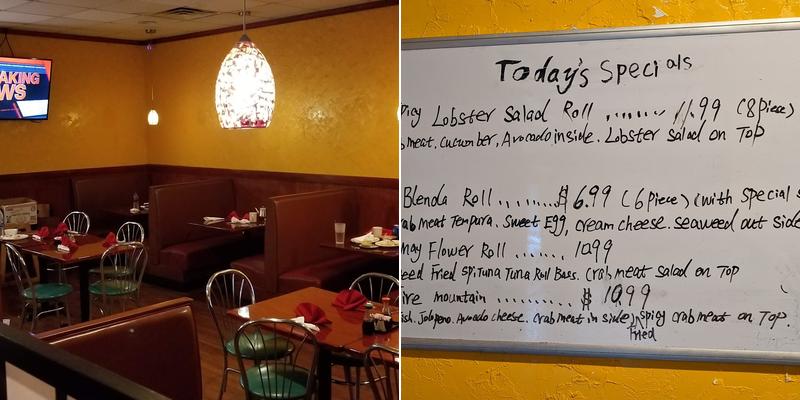 AKING
WS
Today's Specials
picy Lobster Salad Roll ....... 11.99 (8piece)
bmeat, cucumber, Avocado inside. Lobster salad on Top
Blenda Roll ........ $ 6.99 (6piece) (with special s
ab meat Tempura. Sweet Egg, cream cheese. seaweed out side
may Flower Roll ...... 10.99
eed Fried Spituna Tuna Roll Bass. Crab meat salad on Top
ire mountain .......... $ 10.99
ish. Jalopeno. Avocado cheese. crab meat in side, spicy crab meat on Top.
fried